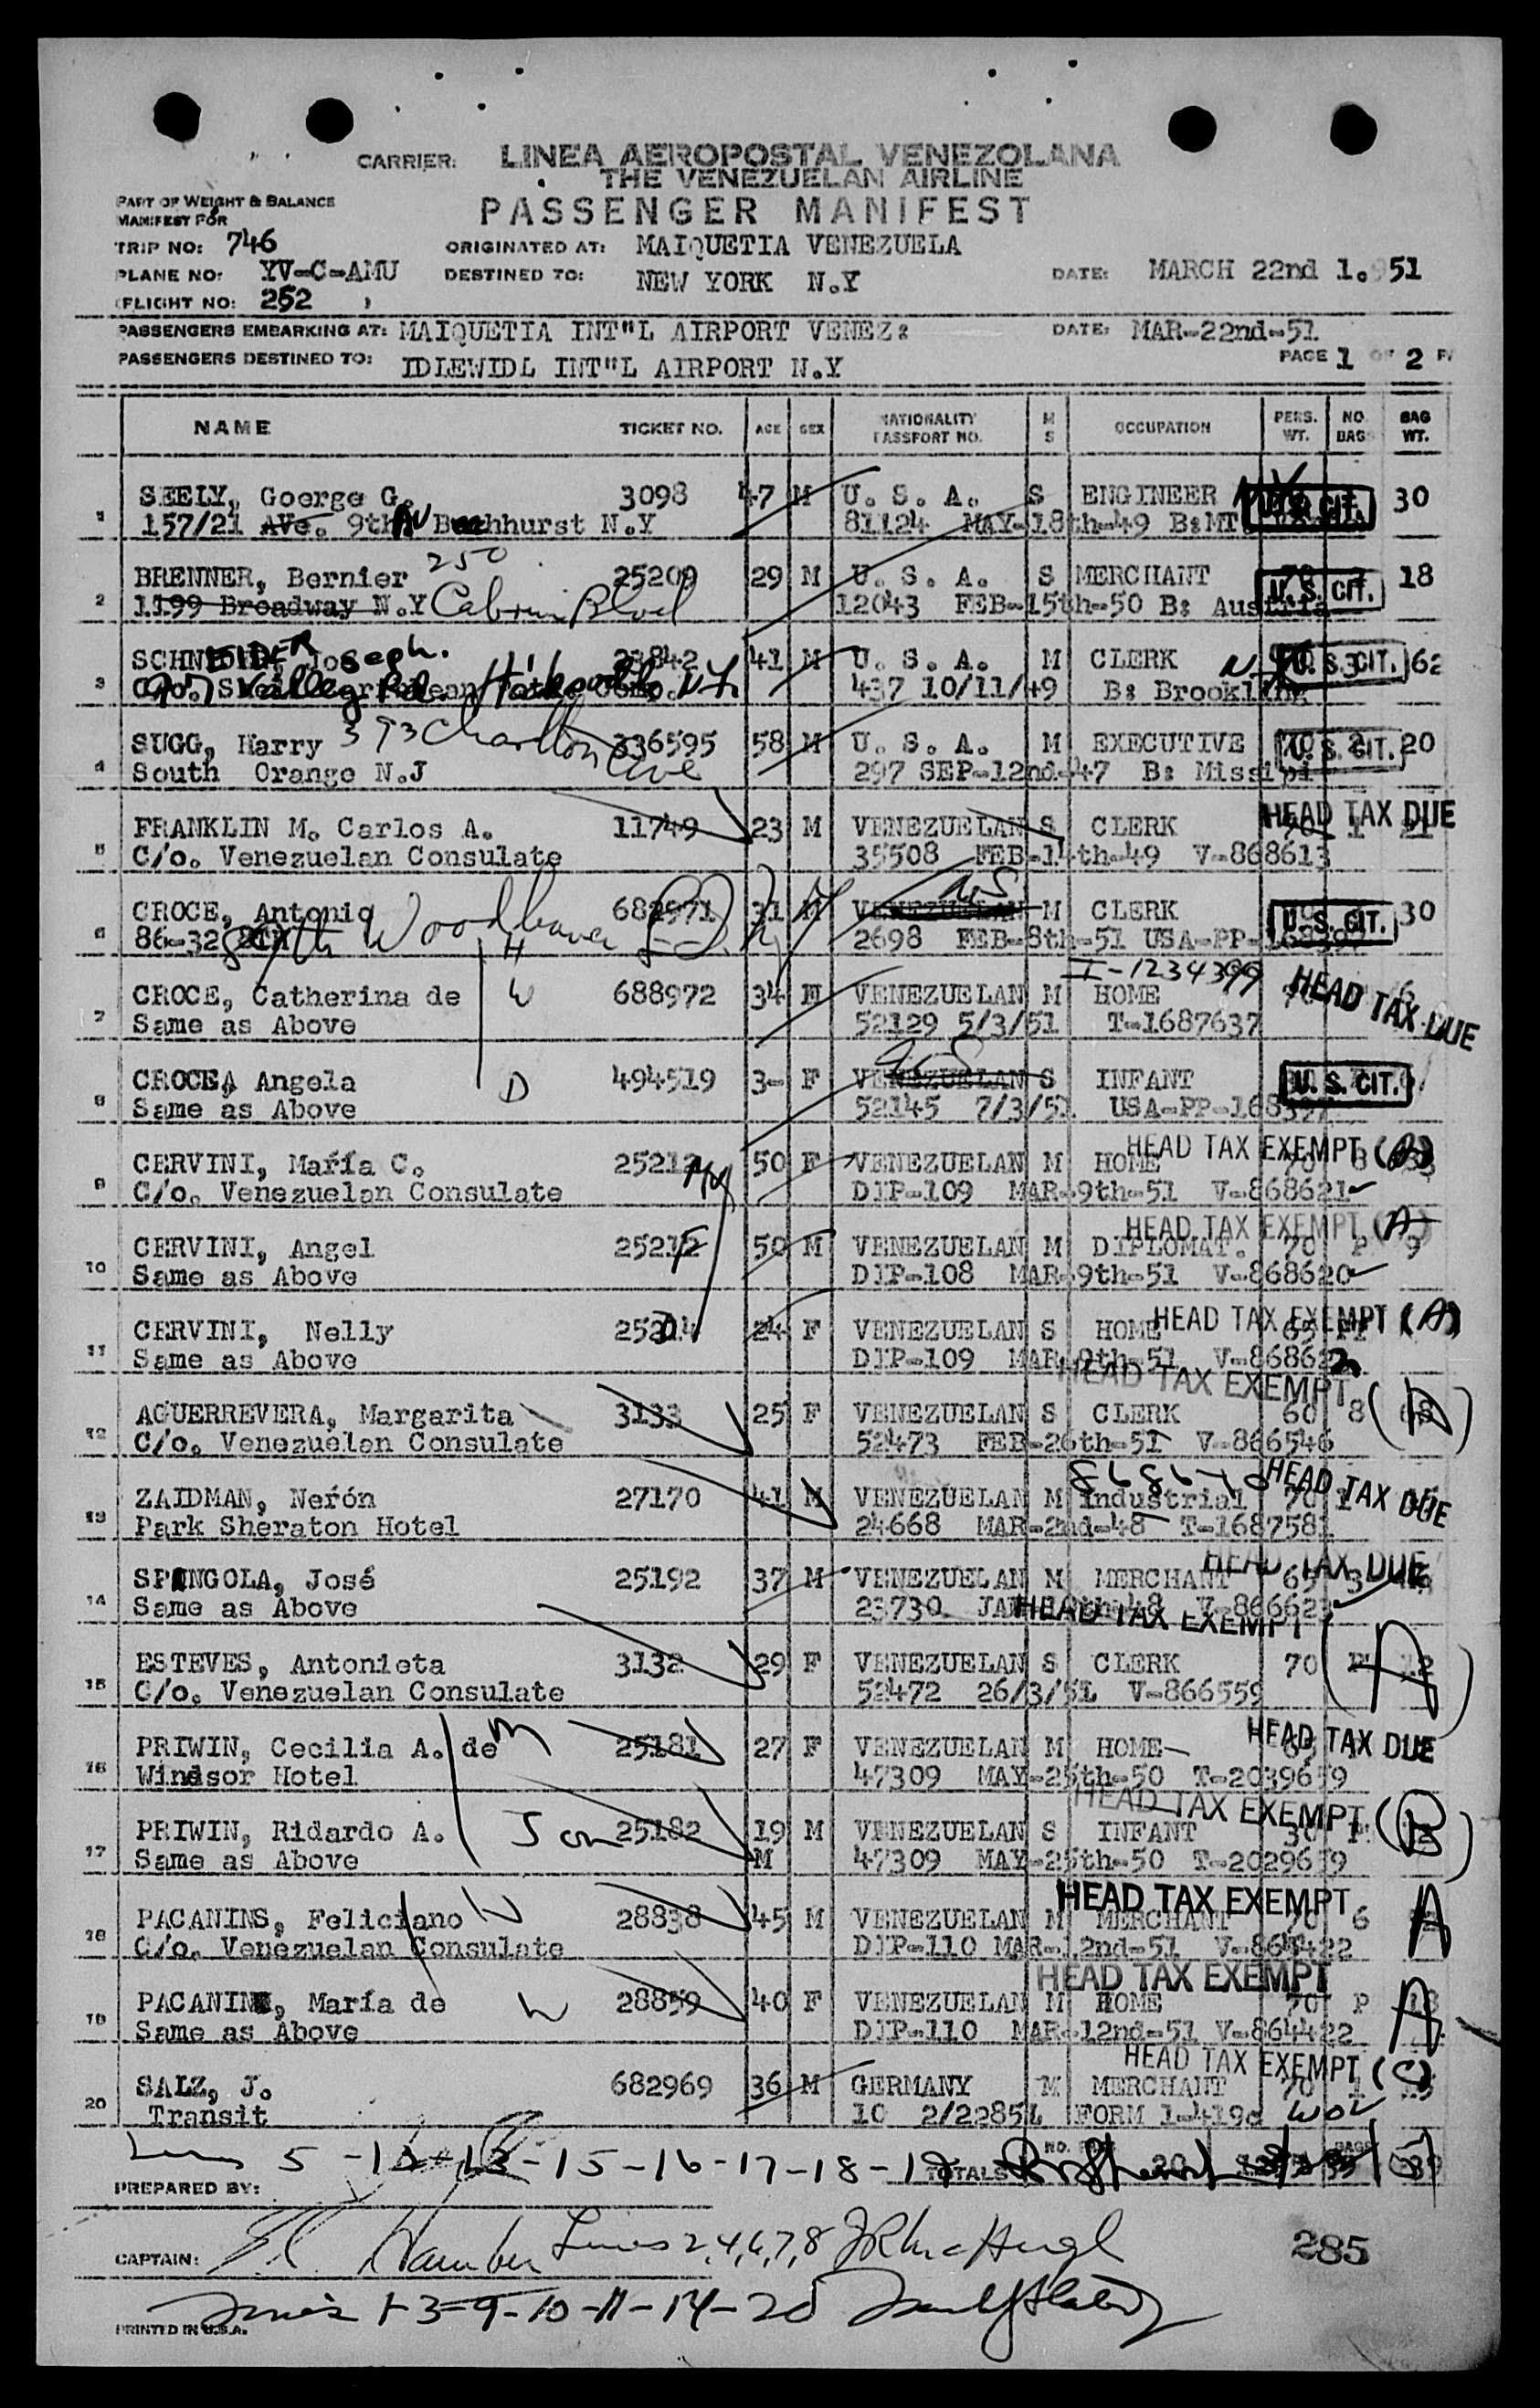 CARRIER: LINEA AEROPOSTAL VENEZOLANA
THE VENEZUELAN AIRLINE
PART OF WEIGHT & BALANCE
MANIFEST FOR
PASSENGER MANIFEST
TRIP NO: 746 ORIGINATED AT: MAIQUETIA VENEZUELA
PLANE NO: YV-C-AMU DESTINED TO: NEW YORK N.Y DATE: MARCH 22nd 1.951
(FLIGHT NO: 252 )
PASSENGERS EMBARKING AT: MAIQUETIA INT"L AIRPORT VENEZ: DATE: MAR-22nd-51
PASSENGERS DESTINED TO: IDLEWIDL INT"L AIRPORT N.Y PAGE 1 OF 2
NAME TICKET NO. AGE SEX NATIONALITY PASSPORT NO. M S OCCUPATION PERS. WT. NO. BAGS BAG WT.
1 SEELY, Goerge G. 3098 47 M U. S. A. S ENGINEER U.S. CIT. 30
157/21 AVe. 9th AV hhurst N.Y 81124 MAY-18th-49 B:MT
250
2 BRENNER, Bernier 25209 29 M U. S. A. S MERCHANT U. S. CIT. 18
1199 Broadway N.Y Cabrini Blvd 12043 FEB-15th-50 B: Austria
3 SCHNEIDER Joseph. 23842 41 M U. S. A. M CLERK U. S. CIT. 62
Valley Rd. N.Y. 437 10/11/49 B: Brookling
4 SUGG, Harry 393 Charlton Ave 336595 58 M U. S. A. M EXECUTIVE U. S. CIT. 20
South Orange N.J 297 SEP-12nd-47 B: Missipi
5 FRANKLIN M. Carlos A. 11749 23 M VENEZUELAN S CLERK HEAD TAX DUE
C/o. Venezuelan Consulate 35508 FEB-14th-49 V-868613
6 CROCE, Antonio 682971 31 M VENEZUELAN US M CLERK U. S. CIT. 30
86-32 84th Woodhaven L.I. N.Y 2698 FEB-8th-51 USA-PP-168397
H I-1234399
7 CROCE, Catherina de W 688972 34 F VENEZUELAN M HOME HEAD TAX DUE
Same as Above 52129 5/3/51 T-1687637
8 CROCE, Angela D 494519 3- F VENEZUELAN US S INFANT U. S. CIT.
Same as Above 52145 7/3/51 USA-PP-168397
9 CERVINI, María C. 25212 My 50 F VENEZUELAN M HOME HEAD TAX EXEMPT (A)
C/o. Venezuelan Consulate DIP-109 MAR-9th-51 V-868621
10 CERVINI, Angel 25212 F 50 M VENEZUELAN M DIPLOMAT. HEAD TAX EXEMPT (A) 70 P 9
Same as Above DIP-108 MAR-9th-51 V-868620
11 CERVINI, Nelly 25214 D 24 F VENEZUELAN S HOME HEAD TAX EXEMPT (A)
Same as Above DIP-109 MAR-9th-51 V-868622
HEAD TAX EXEMPT
12 AGUERREVERA, Margarita 3133 25 F VENEZUELAN S CLERK 60 8 (A)
C/o. Venezuelan Consulate 52473 FEB-26th-51 V-866546
13 ZAIDMAN, Nerón 27170 41 M VENEZUELAN M industrial 70 1 HEAD TAX DUE
Park Sheraton Hotel 24668 MAR-2nd-48 T-1687581
14 SPINGOLA, José 25192 37 M VENEZUELAN M MERCHANT 65 3 HEAD TAX DUE
Same as Above 23730 V-866623
HEAD TAX EXEMPT
15 ESTEVES, Antonieta 3132 29 F VENEZUELAN S CLERK 70 (A)
C/o. Venezuelan Consulate 52472 26/3/51 V-866559
16 PRIWIN, Cecilia A. de M 25181 27 F VENEZUELAN M HOME HEAD TAX DUE
Windsor Hotel 47309 MAY-25th-50 T-2039659
HEAD TAX EXEMPT (B)
17 PRIWIN, Ridardo A. Son 25182 19 M VENEZUELAN S INFANT 30
Same as Above M 47309 MAY-25th-50 T-2029659
HEAD TAX EXEMPT A
18 PACANINS, Feliciano 28838 45 M VENEZUELAN M MERCHANT 70 6
C/o. Venezuelan Consulate DIP-110 MAR-12nd-51 V-864422
HEAD TAX EXEMPT A
19 PACANINS, María de W 28859 40 F VENEZUELAN M HOME 70 P 18
Same as Above DIP-110 MAR-12nd-51 V-864422
HEAD TAX EXEMPT (C)
20 SALZ, J. 682969 36 M GERMANY M MERCHANT 70 1
Transit 10 2/22851 FORM 1-419d WOV
Lines 5-12-13-15-16-17-18-19 TOTALS 20
PREPARED BY:
CAPTAIN: Lines 2,4,6,7,8 285
Lines 1-3-9-10-11-14-20
PRINTED IN U.S.A.